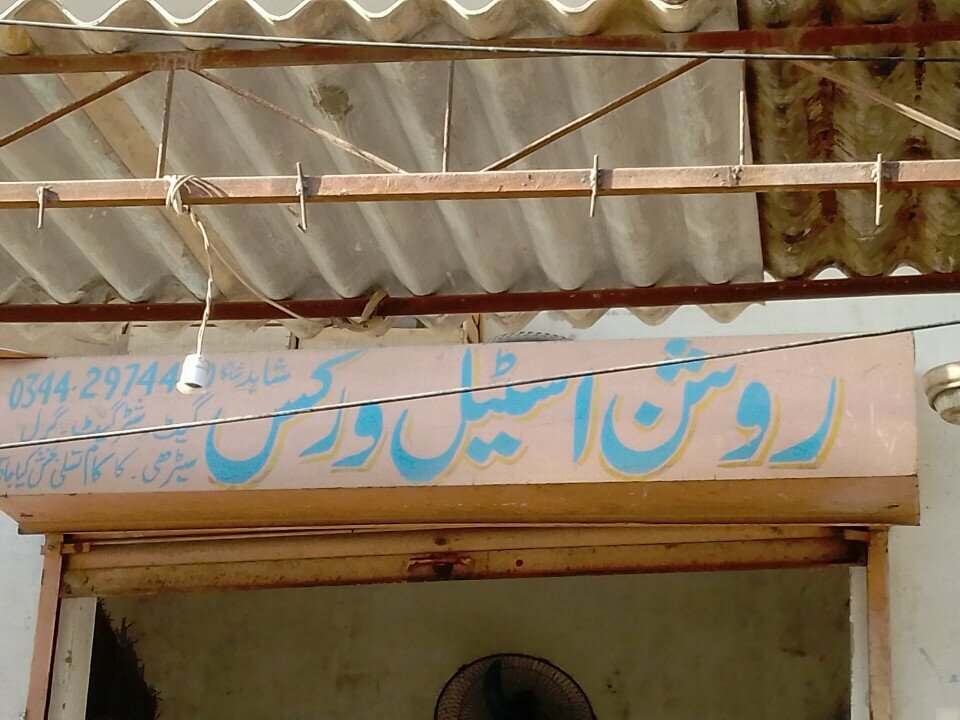 روشن اسٹیل ورکس
شاہد
0344-29744
گیٹ۔ شٹر گیٹ۔ گرل
سیڑھی۔ کا کام تسلی بخش کیا جاتا